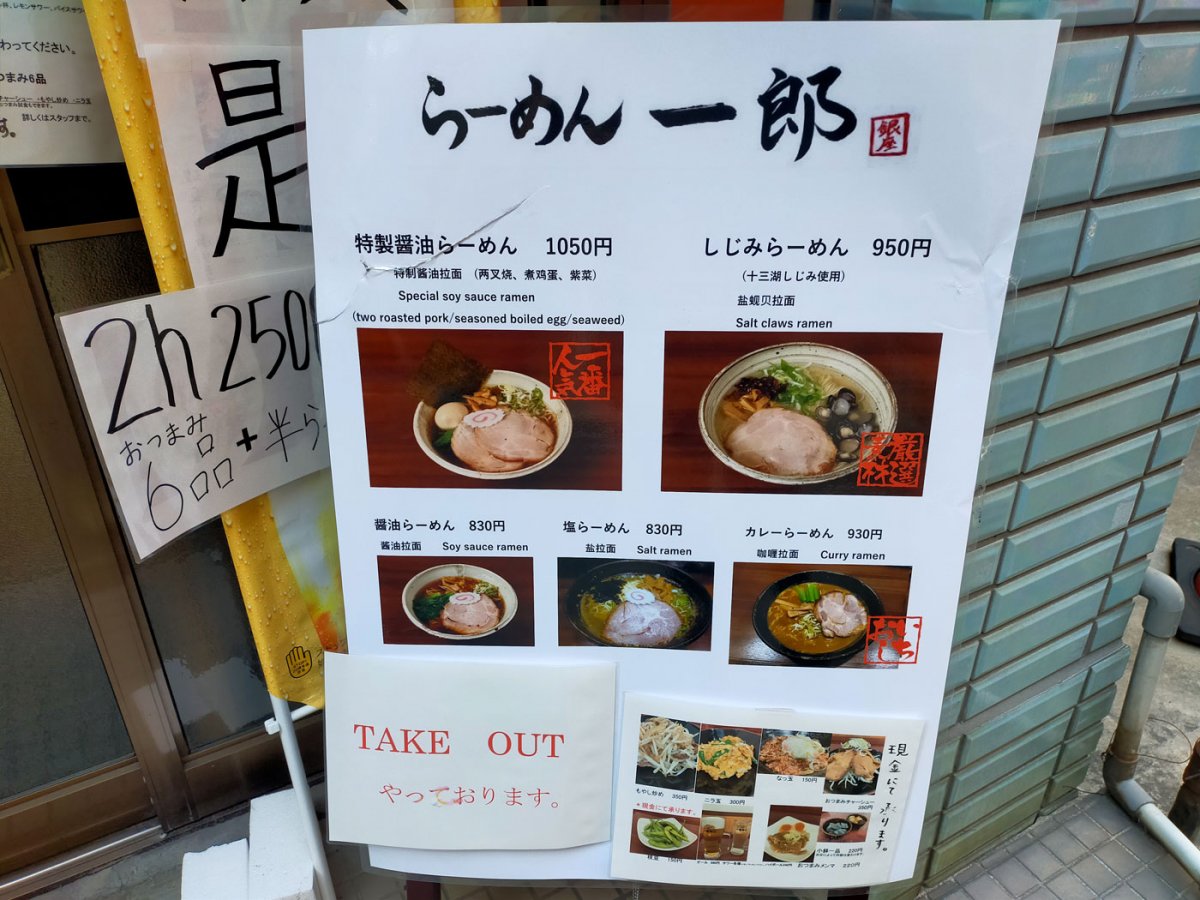 杯、レモンサワー、バイスサワ
わってください。
つまみ6品
チャーシュー ・もやし炒め ・ニラ玉
詳しくはスタッフまで。
す。
是
2h 250
おつまみ
6品 + 半ら
らーめん 一郎
銀座
特製醤油らーめん 1050円
特制酱油拉面 (两叉烧、煮鸡蛋、紫菜)
Special soy sauce ramen
(two roasted pork/seasoned boiled egg/seaweed)
一番人気
しじみらーめん 950円
(十三湖しじみ使用)
盐蚬贝拉面
Salt claws ramen
厳選素材
醤油らーめん 830円
酱油拉面 Soy sauce ramen
塩らーめん 830円
盐拉面 Salt ramen
カレーらーめん 930円
咖喱拉面 Curry ramen
いちおし
TAKE OUT
やっております。
もやし炒め 350円
ニラ玉 300円
なっ玉 150円
おつまみチャーシュー
350円
*現金にて承ります。
枝豆 150円
小鉢一品 220円
おつまみメンマ 220円
現金にて承ります。